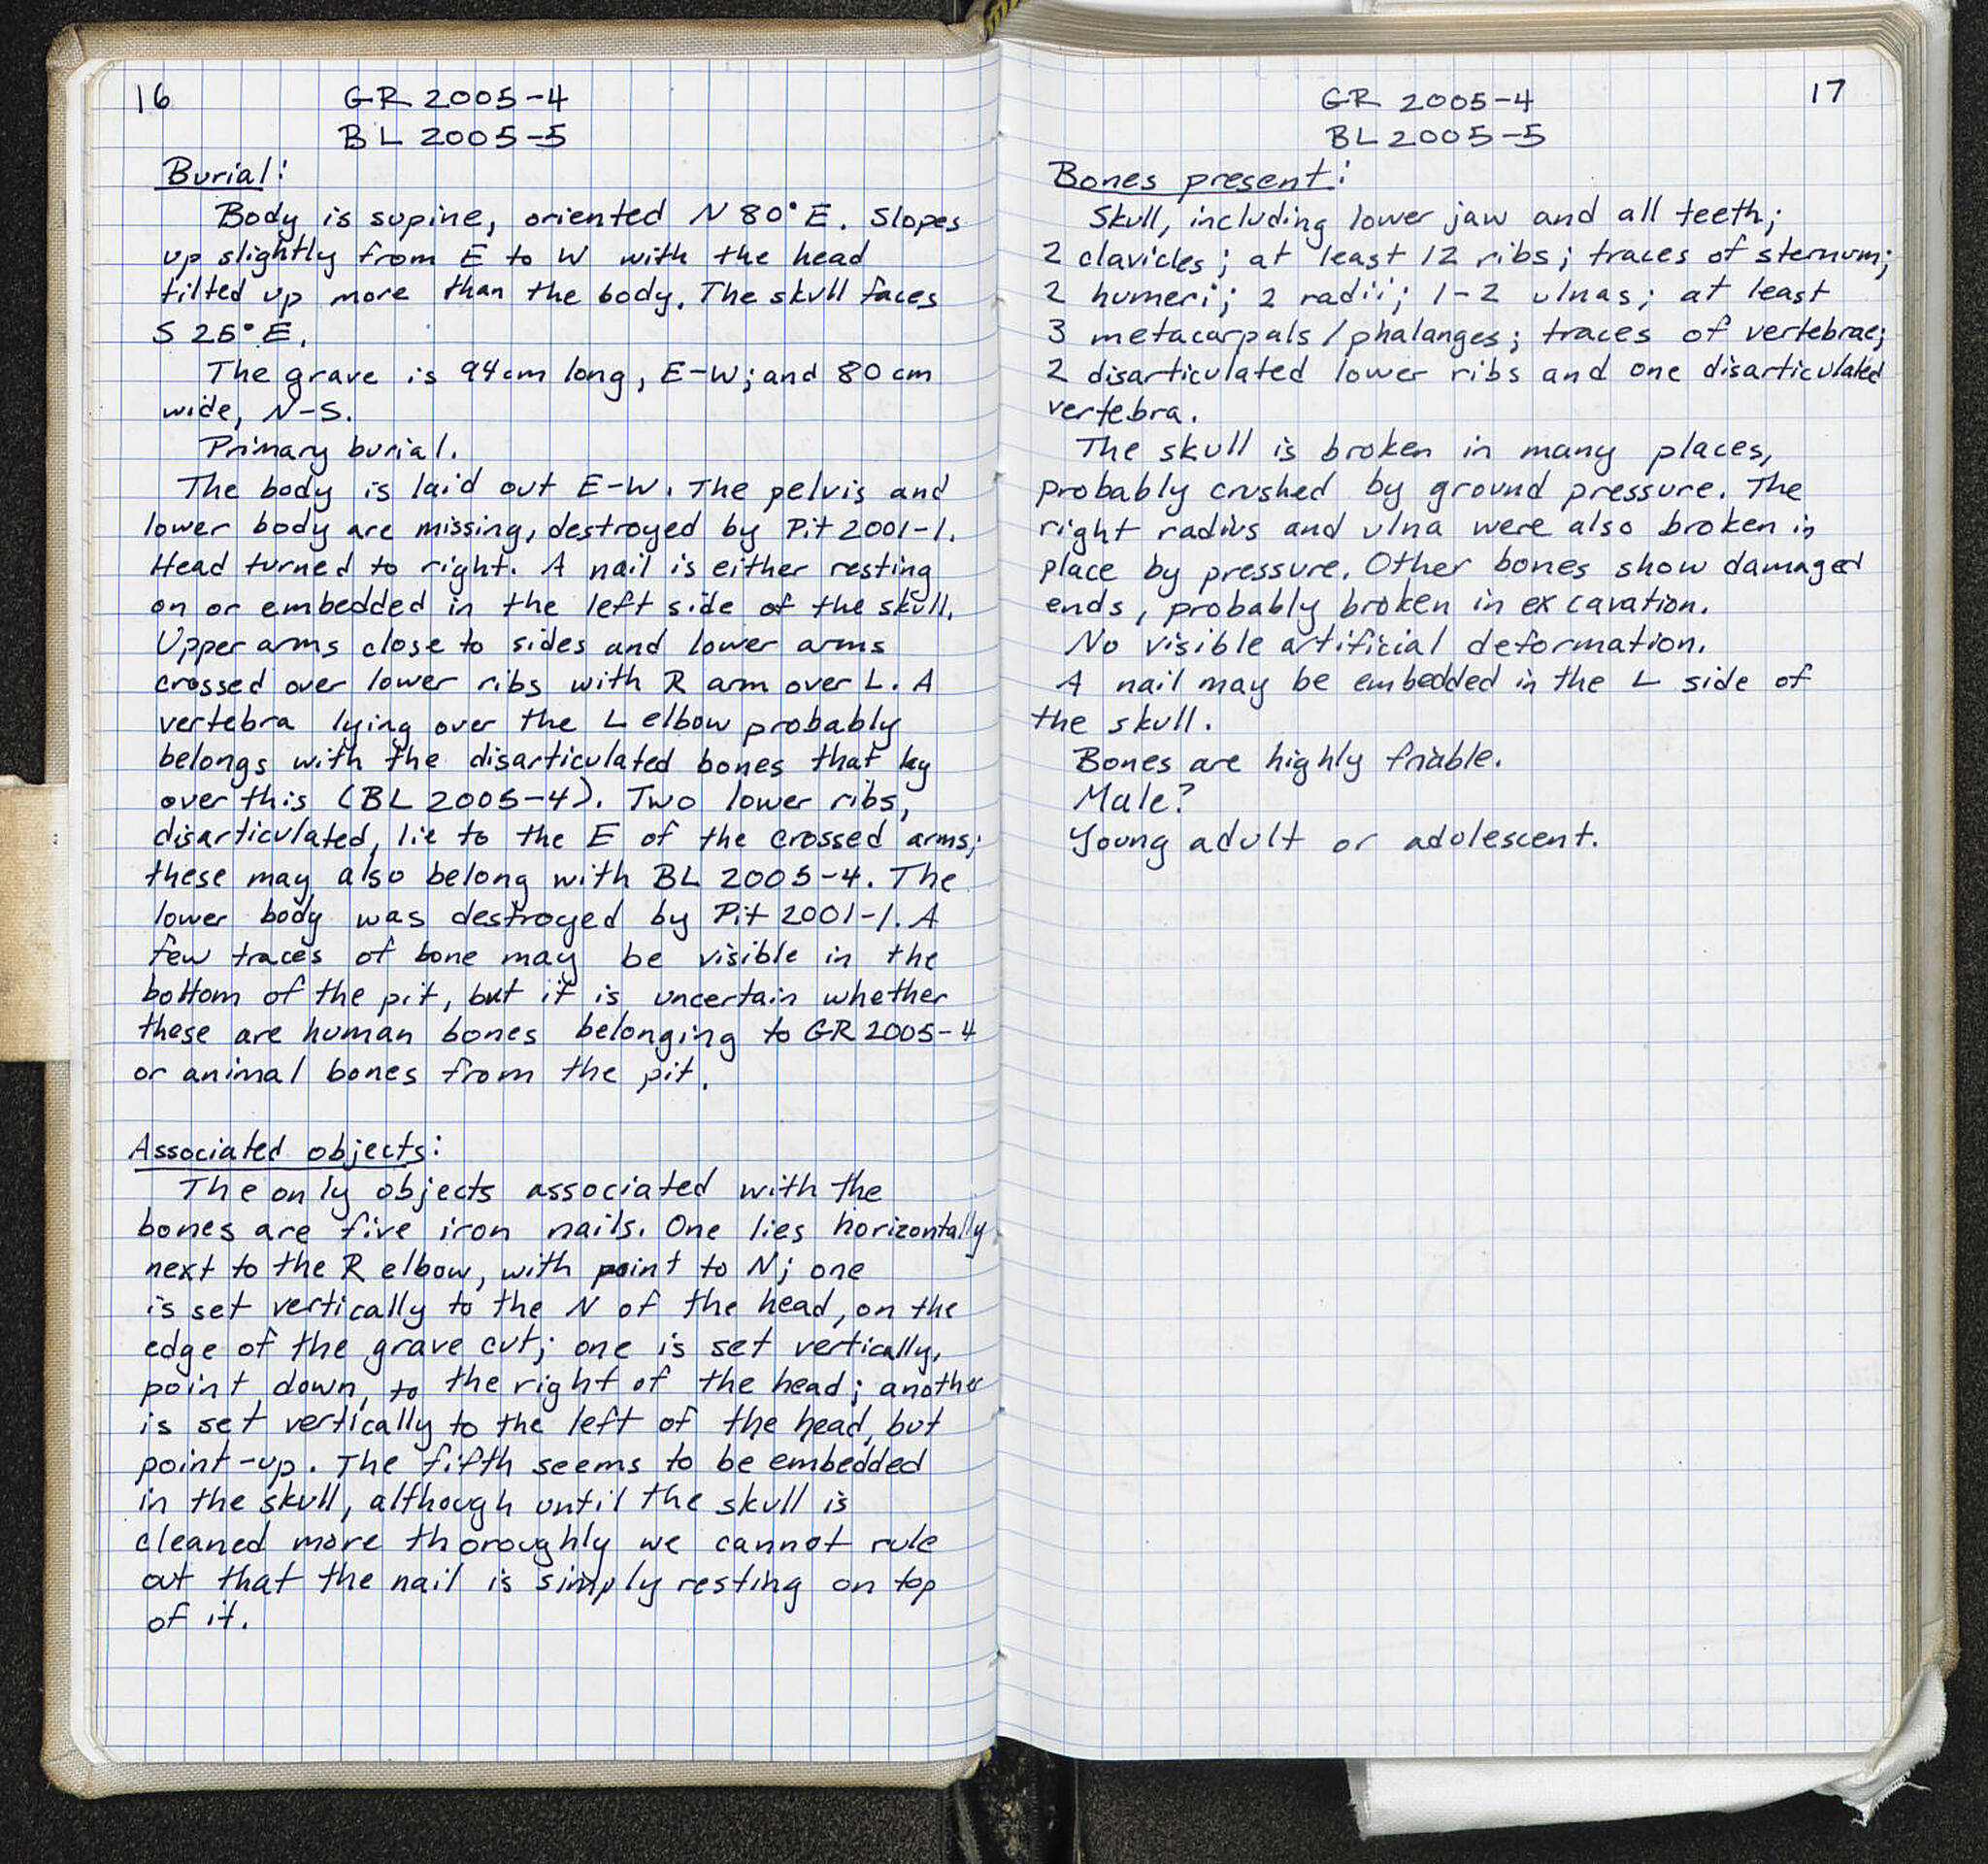 16
GR 2005-4
BL 2005-5
Burial:
Body is supine, oriented N 80° E. Slopes
up slightly from E to W with the head
tilted up more than the body. The skull faces
S 25° E.
The grave is 94 cm long, E-W; and 80 cm
wide, N-S.
Primary burial.
The body is laid out E-W. The pelvis and
lower body are missing, destroyed by Pit 2001-1.
Head turned to right. A nail is either resting
on or embedded in the left side of the skull.
Upper arms close to sides and lower arms
crossed over lower ribs with R arm over L. A
vertebra lying over the L elbow probably
belongs with the disarticulated bones that lay
over this (BL 2005-4). Two lower ribs,
disarticulated, lie to the E of the crossed arms;
these may also belong with BL 2005-4. The
lower body was destroyed by Pit 2001-1. A
few traces of bone may be visible in the
bottom of the pit, but it is uncertain whether
these are human bones belonging to GR 2005-4
or animal bones from the pit.
Associated objects:
The only objects associated with the
bones are five iron nails. One lies horizontally
next to the R elbow, with point to N; one
is set vertically to the N of the head, on the
edge of the grave cut; one is set vertically,
point down, to the right of the head; another
is set vertically to the left of the head, but
point-up. The fifth seems to be embedded
in the skull, although until the skull is
cleaned more thoroughly we cannot rule
out that the nail is simply resting on top
of it.
17
GR 2005-4
BL 2005-5
Bones present:
Skull, including lower jaw and all teeth;
2 clavicles; at least 12 ribs; traces of sternum;
2 humeri; 2 radii; 1-2 ulnas; at least
3 metacarpals/phalanges; traces of vertebrae;
2 disarticulated lower ribs and one disarticulated
vertebra.
The skull is broken in many places,
probably crushed by ground pressure. The
right radius and ulna were also broken in
place by pressure. Other bones show damaged
ends, probably broken in excavation.
No visible artificial deformation.
A nail may be embedded in the L side of
the skull.
Bones are highly friable.
Male?
Young adult or adolescent.